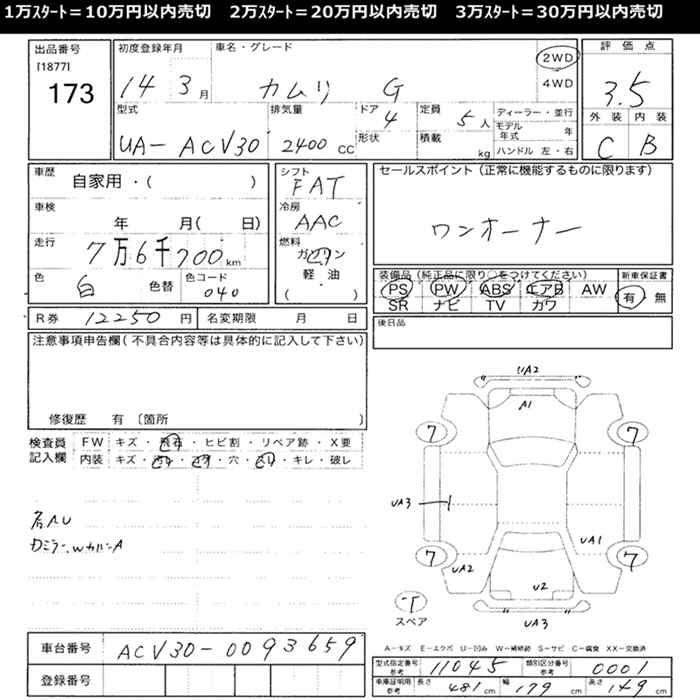 1万ｽﾀｰﾄ＝10万円以内売切　2万ｽﾀｰﾄ＝20万円以内売切　3万ｽﾀｰﾄ＝30万円以内売切
出品番号 初度登録年月 車名・グレード 評価点
[1877]
173 14 3月 カムリ G 2WD 4WD 3.5
型式 排気量 ドア 4 定員 5人 ディーラー・並行 外装 内装
UA-ACV30 2400cc 形状 積載 kg モデル年式 年 C B
ハンドル 左・右
車歴 自家用・( ) シフト FAT セールスポイント (正常に機能するものに限ります)
車検 年 月( 日) 冷房 AAC ワンオーナー
走行 7万6千700km 燃料 ガソリン
軽油
( )
色 白 色替 色コード 040
装備品 (純正品に限り○をつけてください) 新車保証書
PS PW ABS エアB AW 有・無
SR ナビ TV カワ
R券 12250円 名変期限 月 日 後日品
注意事項申告欄 (不具合内容等は具体的に記入して下さい)
修復歴 有 〔箇所
検査員 FW キズ・飛石・ヒビ割・リペア跡・X要
記入欄 内装 キズ・・・穴・・キレ・破レ
UA2
A1
7 7
UA3 UA1
7 7
UA2 U2
UA3
T
スペア
車台番号 ACV30-0093659
登録番号
A－キズ E－エクボ U－凹み W－補修跡 S－サビ C－腐食 XX－交換済
型式指定番号 参考 11045 類別区分番号 参考 0001
車庫証明用 参考 長さ 481cm 幅 179cm 高さ 149cm